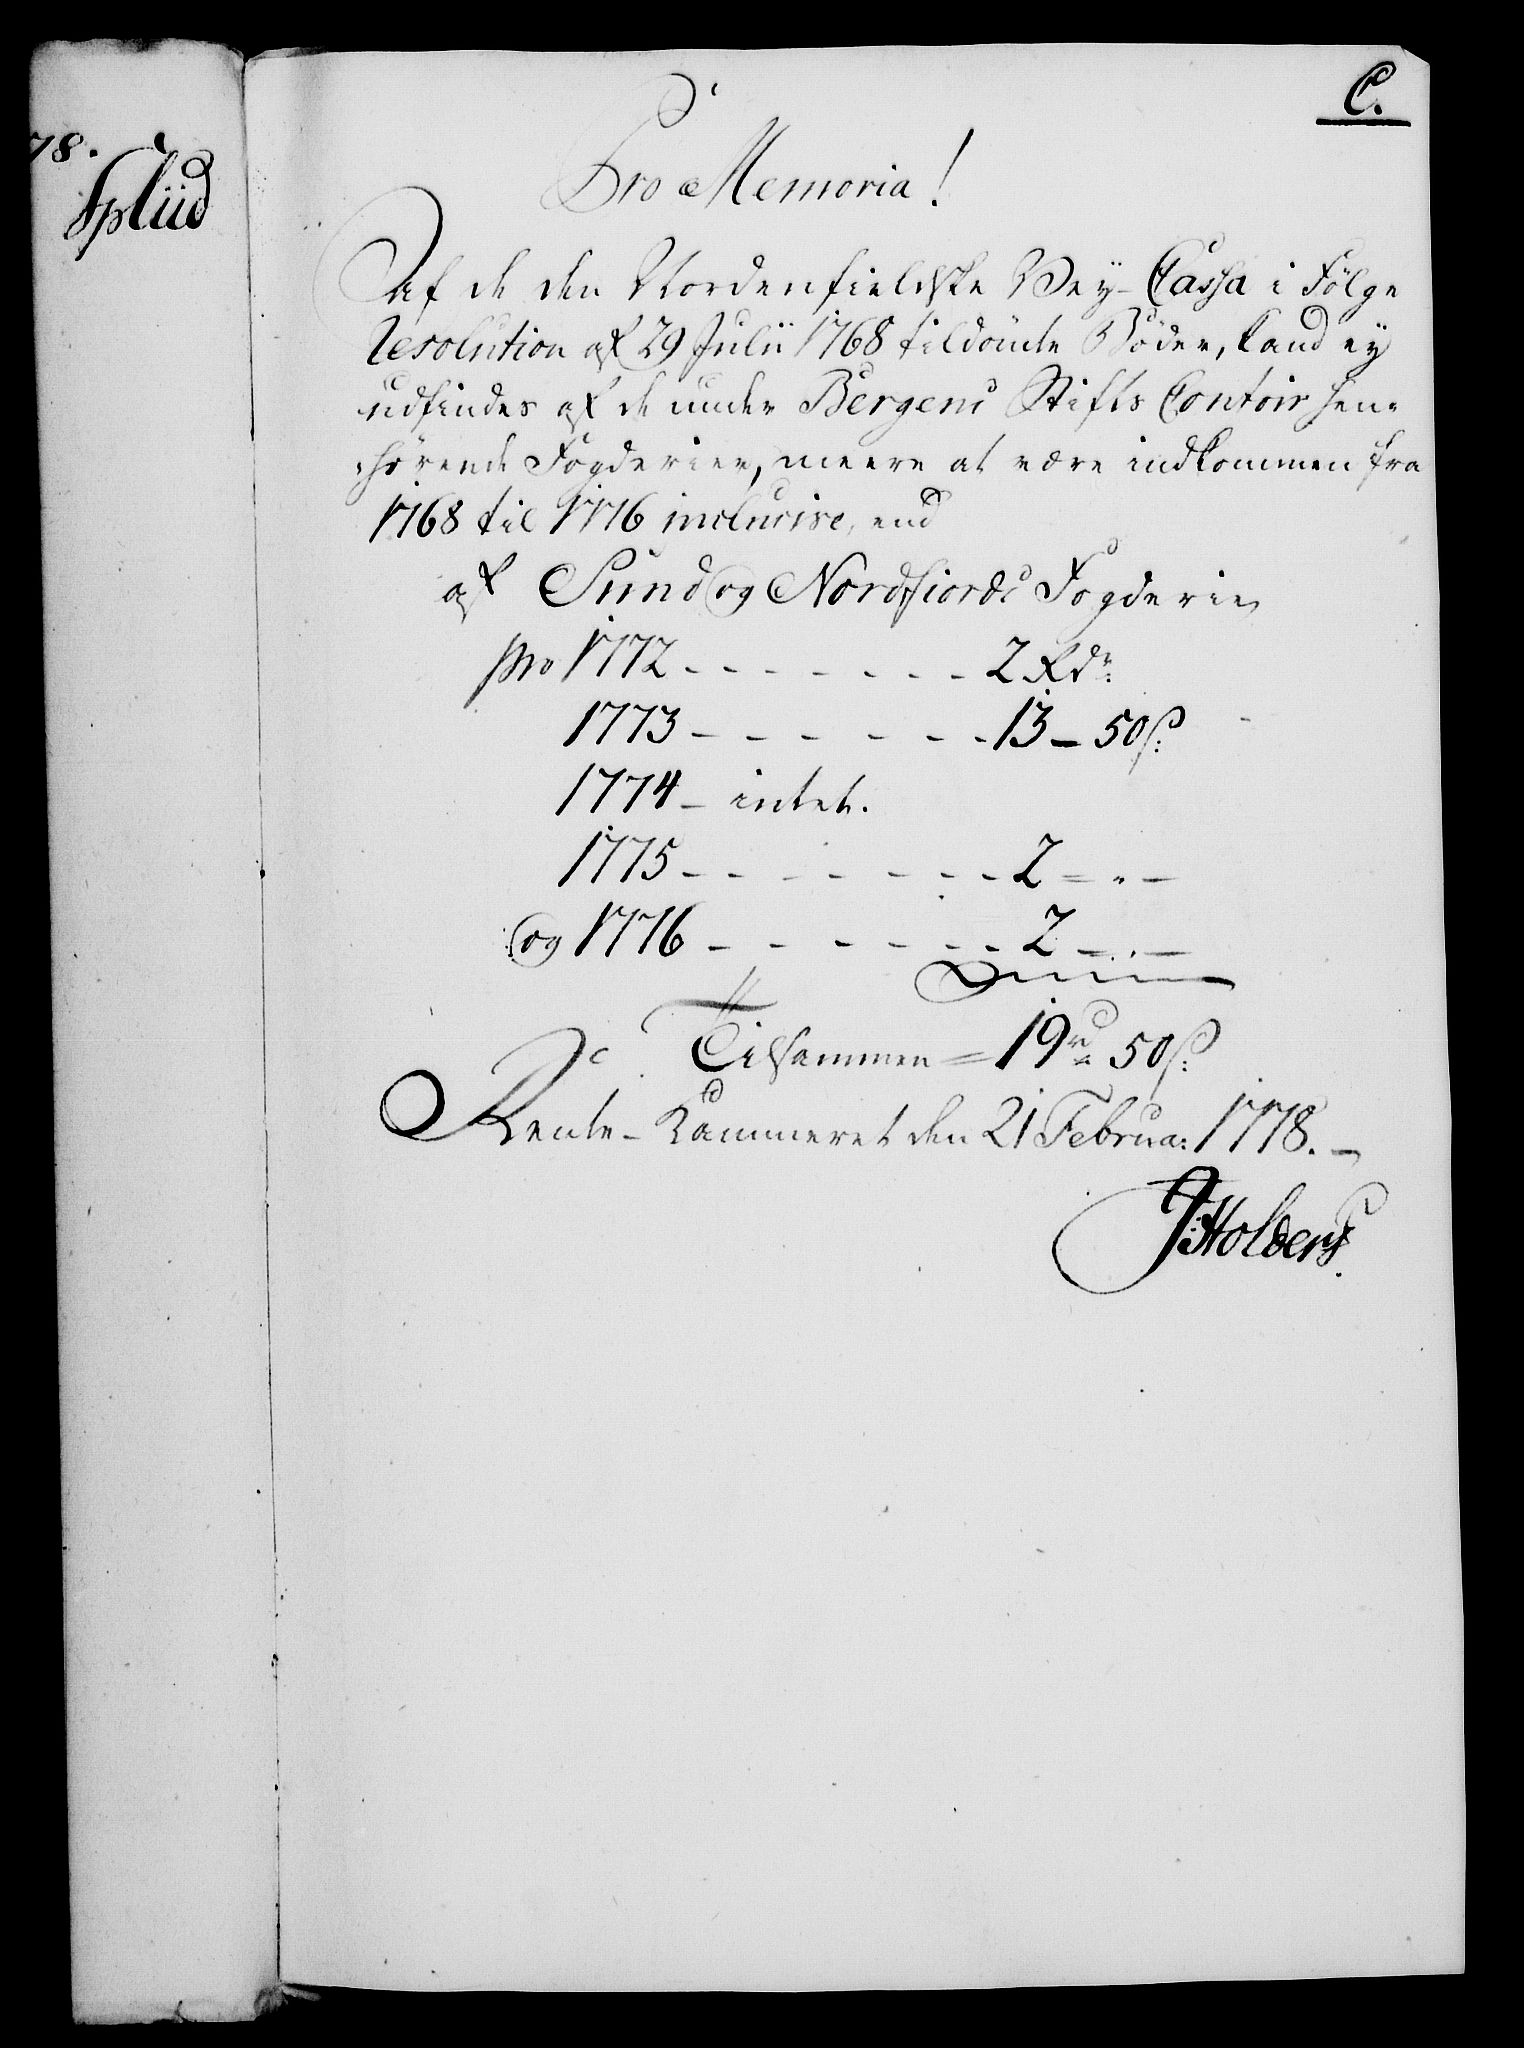 78.
Spliid
C.
Pro Memoria!
Af de den Nordenfieldske Vey-Cassa i Følge
Resolution af 29 Julii 1768 tildömte Böder, kand ey
udfindes af de under Bergens Stifts Contoir hen-
hörende Fogderier, meere at være indkommen fra
1768 til 1776 inclusive, end
af Sund og Nordfiords Fogderie
pro 1772 - - - - - - - 2 Rdr:
1773 - - - - - - - 13 - 50 s:
1774 - intet.
1775 - - - - - - - 2 = " -
og 1776 - - - - - - - 2 - . -
Tilsammen = 19 rd 50 s:
Rente-Kammeret den 21 Februa: 1778. -
J: Holbers